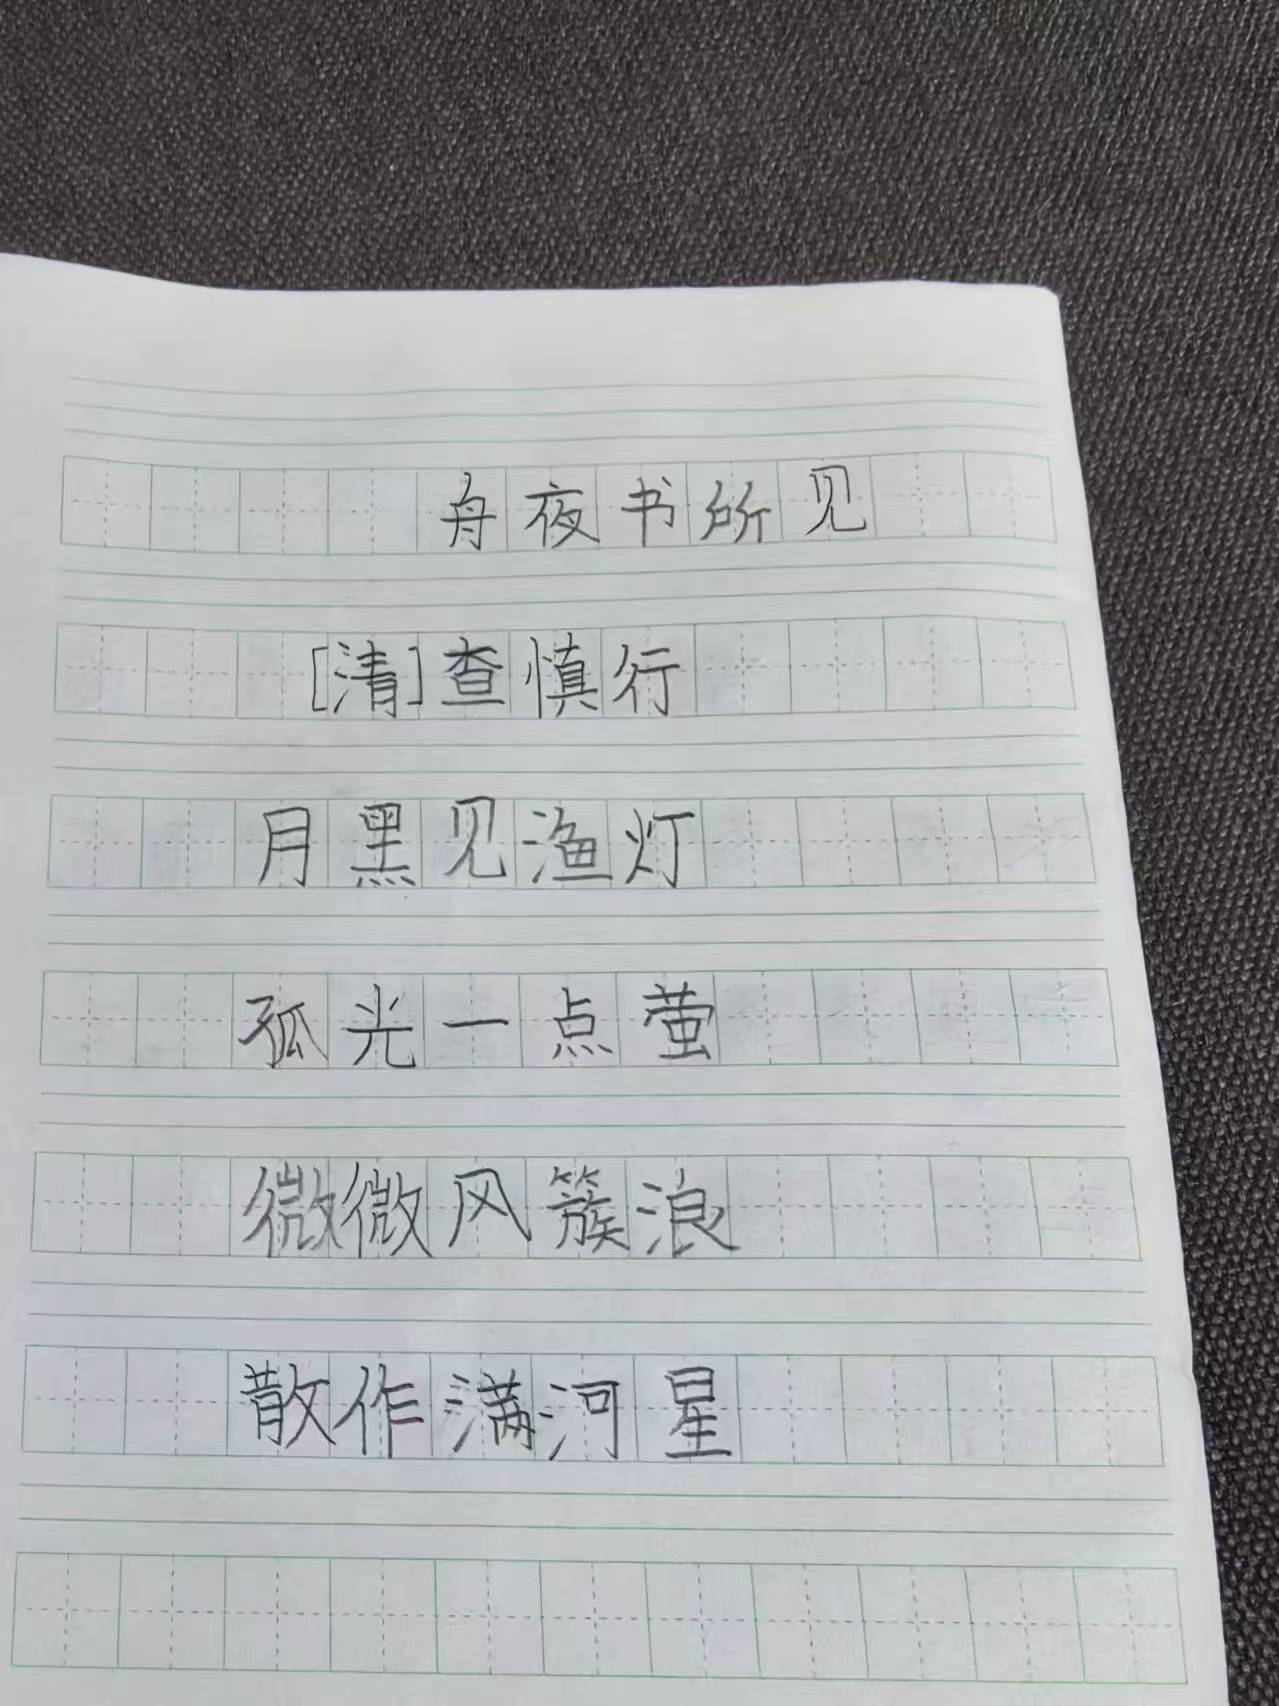 舟夜书所见
[清]查慎行
月黑见渔灯
孤光一点萤
微微风簇浪
散作满河星